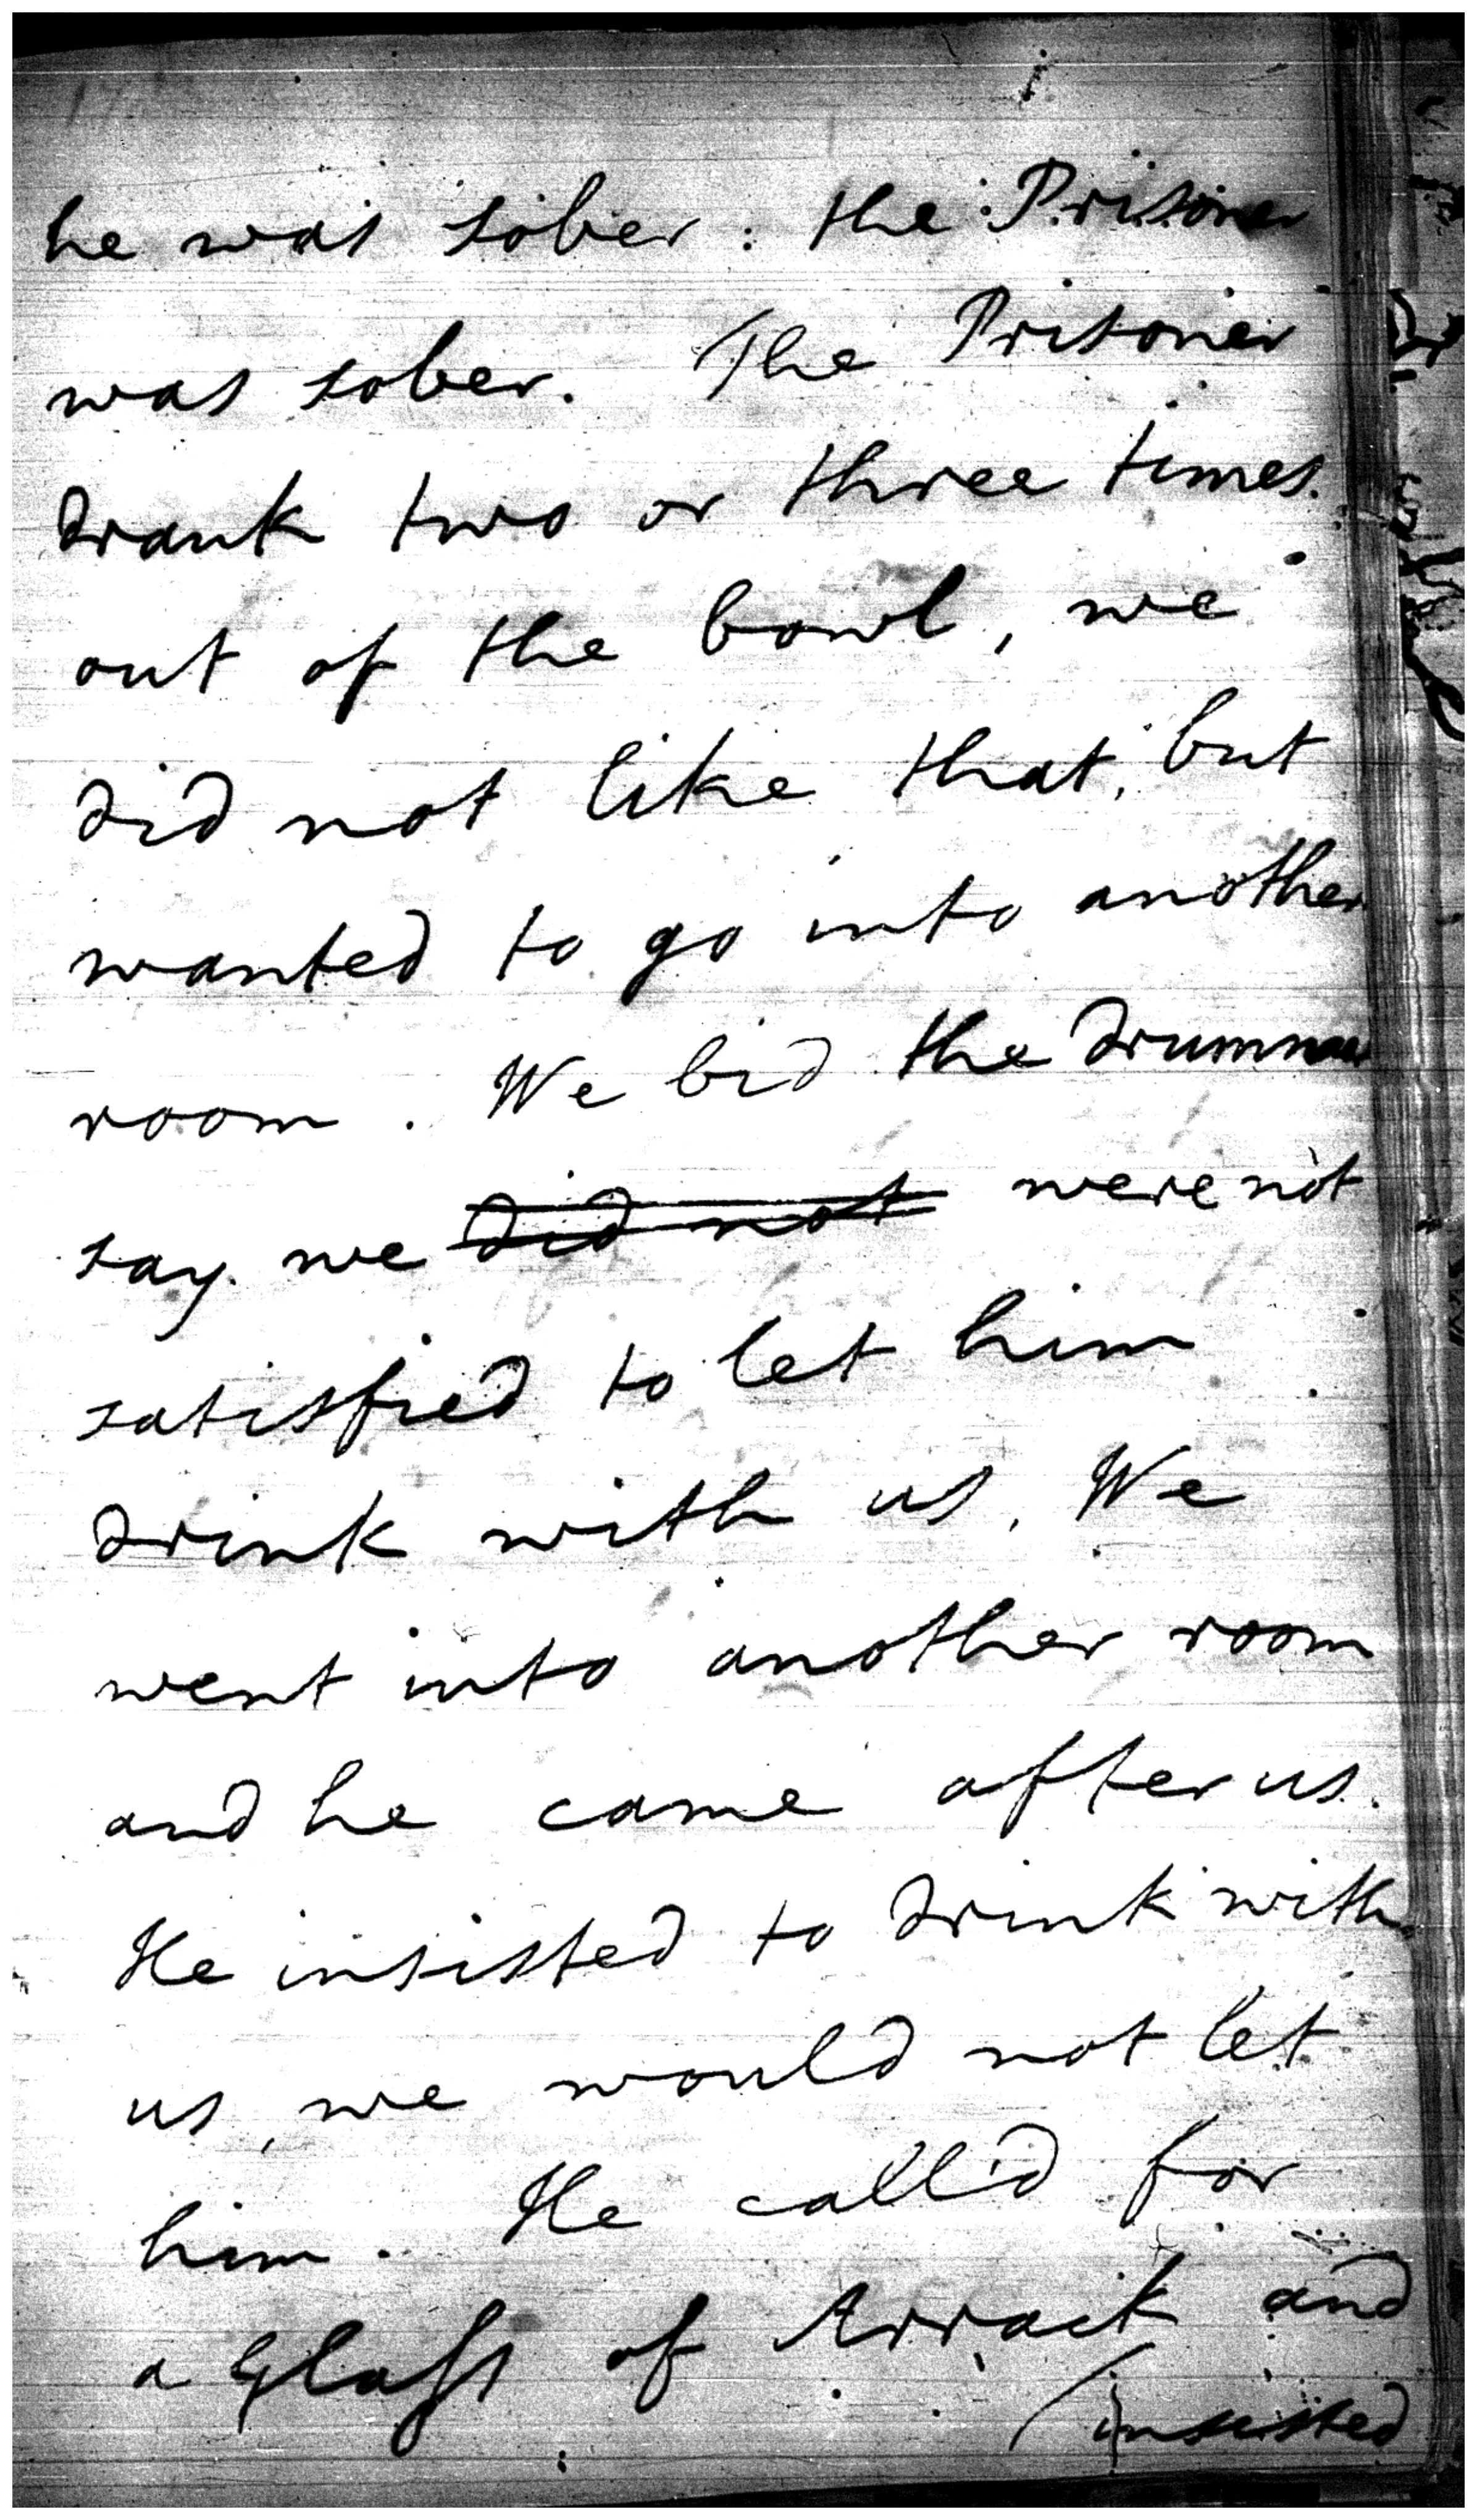 he was sober : the Prisoner
was sober. The Prisoner
drank two or three times
out of the bowl, we
did not like that, but
wanted to go into another
room. We bid the drummer
say we did not were not
satisfied to let him
drink with us. We
went into another room
and he came after us.
He insisted to drink with
us, we would not let
him. He call'd for
a Glass of Arrack and
(insisted